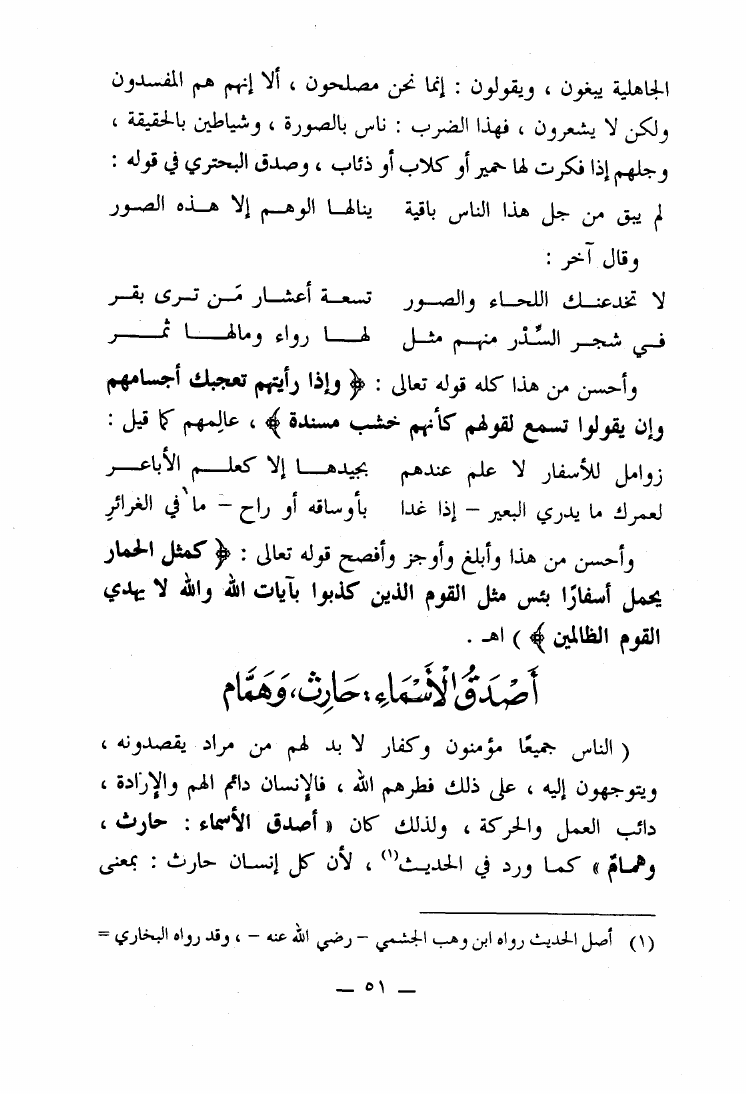 الجاهلية يبغون ، ويقولون : إنما نحن مصلحون ، ألا إنهم هم المفسدون
ولكن لا يشعرون ، فهذا الضرب : ناس بالصورة ، وشياطين بالحقيقة ،
وجلهم إذا فكرت لها حمير أو كلاب أو ذئاب ، وصدق البحتري في قوله :
لم يبق من جل هذا الناس باقية ينالهـا الوهـم إلا هـذه الصـور
وقال آخر :
لا تخدعنـك اللحـاء والصـور تسعـة أعشـار مَـن تـرى بقـر
فـي شجـر السِّدْر منهـم مثـل لهـا رواء ومالهـا ثمـر
وأحسن من هذا كله قوله تعالى : ﴿ وإذا رأيتهم تعجبك أجسامهم
وإن يقولوا تسمع لقولهم كأنهم خشب مسندة ﴾ ، عالِمهم كما قيل :
زوامل للأسفار لا علم عندهم بجيدهـا إلا كعلـم الأباعـر
لعمرك ما يدري البعير – إذا غدا بأوساقه أو راح – ما في الغرائرِ
وأحسن من هذا وأبلغ وأوجز وأفصح قوله تعالى : ﴿ كمثل الحمار
يحمل أسفارًا بئس مثل القوم الذين كذبوا بآيات الله والله لا يهدي
القوم الظالمين ﴾ ) اهـ .
أَصْدَقُ الْأَسْمَاءِ : حَارِث، وَهَمَّام
( الناس جميعًا مؤمنون وكفار لا بد لهم من مراد يقصدونه ،
ويتوجهون إليه ، على ذلك فطرهم الله ، فالإنسان دائم الهم والإرادة ،
دائب العمل والحركة ، ولذلك كان « أصدق الأسماء : حارث ،
وهمامٌ » كمـا ورد في الحديـث(١) ، لأن كل إنسـان حارث : بمعنى
(١) أصل الحديث رواه ابن وهب الجشمي – رضي الله عنه – ، وقد رواه البخاري =
— ٥١ —